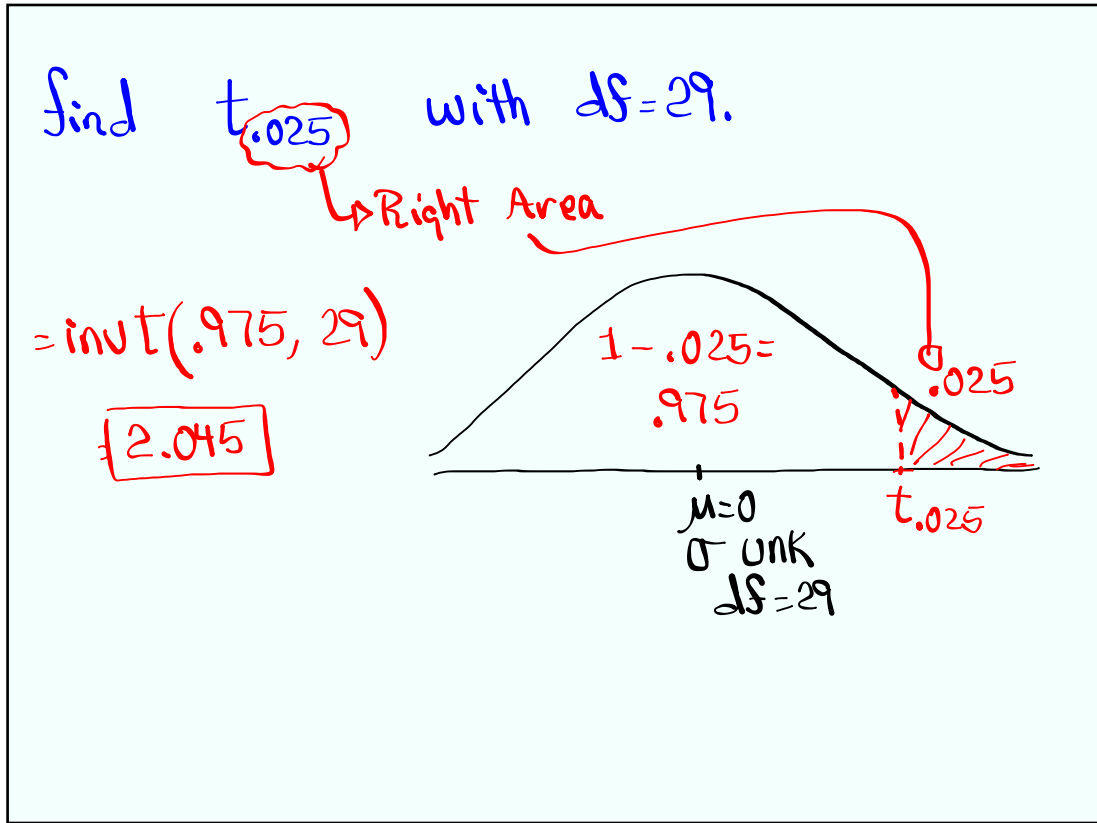 find t.025 with df=29.
Right Area
=invT(.975, 29)
=2.045
1-.025=
.975
.025
t.025
μ=0
σ unk
df=29